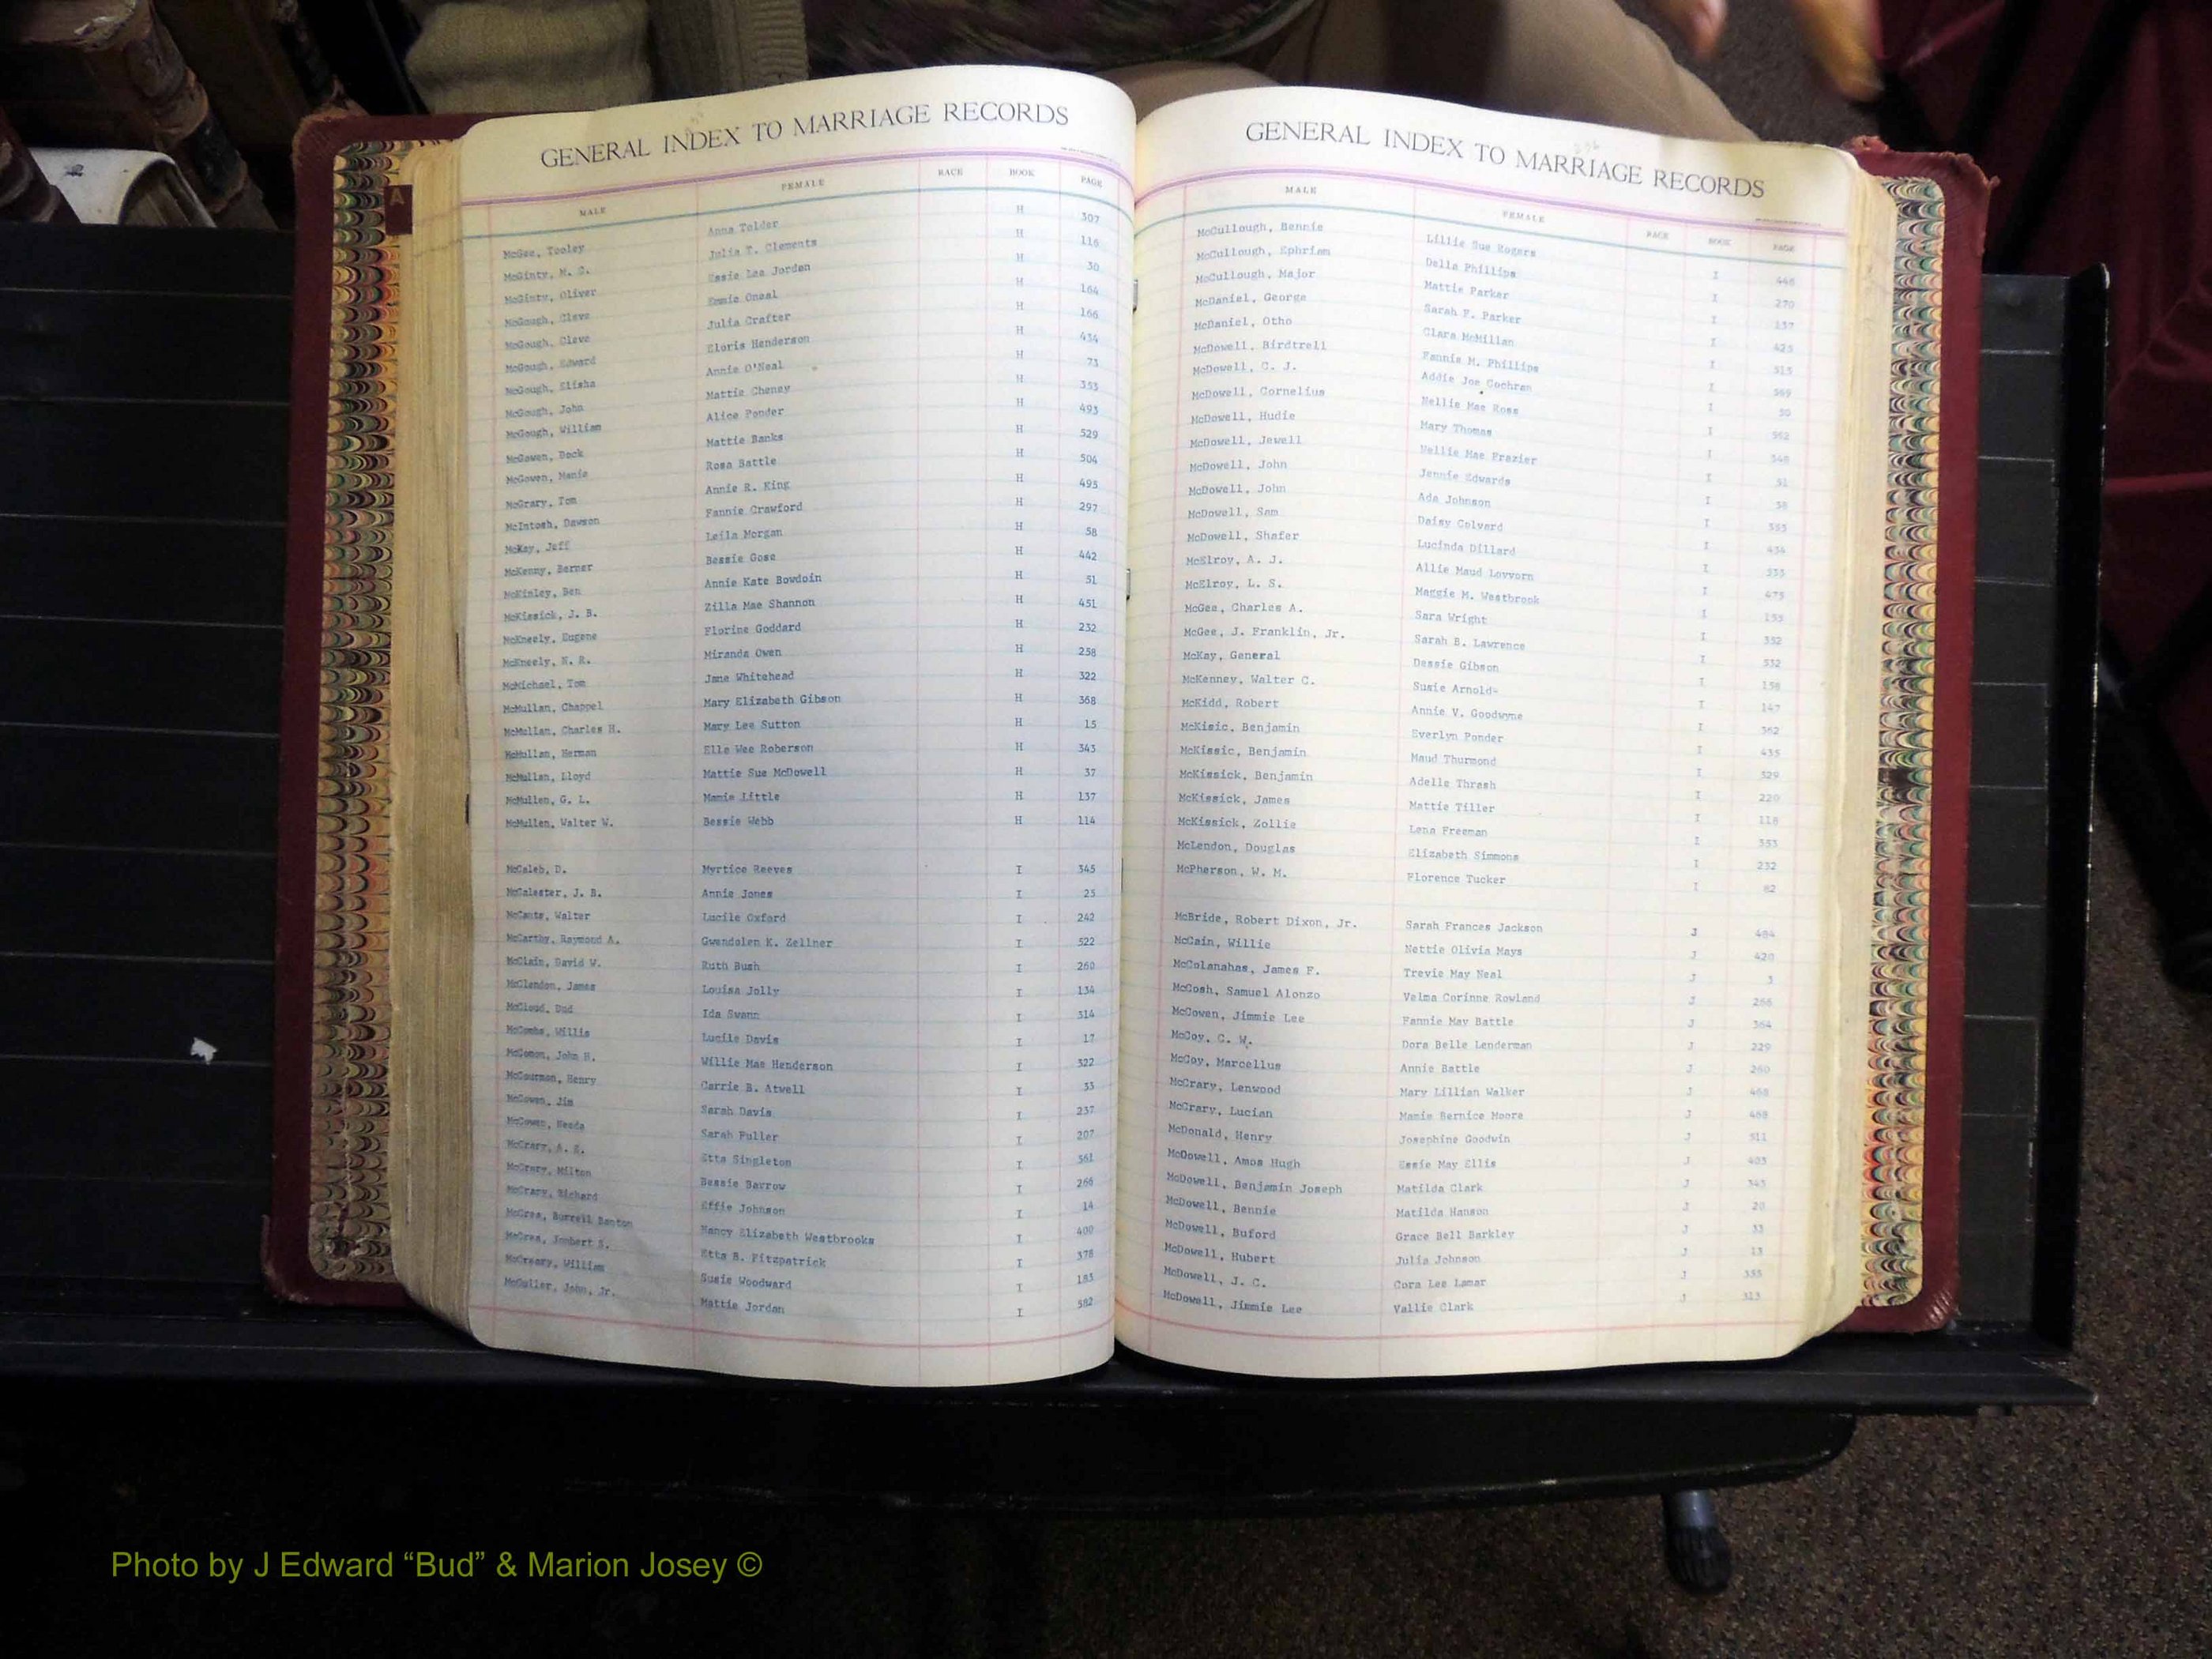 GENERAL INDEX TO MARRIAGE RECORDS
MALE FEMALE RACE BOOK PAGE
McGee, Tooley Anna Telder H 307
McGinty, M. C. Julia T. Clements H 116
McGinty, Oliver Essie Lee Jordan H 30
McGough, Cleve Emmie Oneal H 164
McGough, Cleve Julia Crafter H 166
McGough, Edward Eloris Henderson H 434
McGough, Elisha Annie O'Neal H 73
McGough, John Mattie Cheney H 353
McGough, William Alice Ponder H 493
McGowen, Dock Mattie Banks H 529
McGowen, Manie Rosa Battle H 504
McGrary, Tom Annie R. King H 495
McIntosh, Dawson Fannie Crawford H 297
McKay, Jeff Leila Morgan H 58
McKenny, Berner Bessie Gose H 442
McKinley, Ben Annie Kate Bowdoin H 51
McKissick, J. B. Zilla Mae Shannon H 451
McKneely, Eugene Florine Goddard H 232
McKneely, N. R. Miranda Owen H 258
McMichael, Tom Jane Whitehead H 322
McMullan, Chappel Mary Elizabeth Gibson H 368
McMullan, Charles H. Mary Lee Sutton H 15
McMullan, Herman Elle Wee Roberson H 343
McMullan, Lloyd Mattie Sue McDowell H 37
McMullen, G. L. Mamie Little H 137
McMullen, Walter W. Bessie Webb H 114
McCaleb, D. Myrtice Reeves I 345
McCalester, J. B. Annie Jones I 25
McCants, Walter Lucile Oxford I 242
McCarthy, Raymond A. Gwendolen K. Zellner I 522
McClain, David W. Ruth Bush I 260
McClendon, James Louisa Jolly I 134
McCloud, Bud Ida Swann I 314
McCombs, Willis Lucile Davis I 17
McComon, John H. Willie Mae Henderson I 322
McCournon, Henry Carrie B. Atwell I 33
McCowen, Jim Sarah Davis I 237
McCowen, Sarah Fuller I 207
McCrary, A. E. Etta Singleton I 361
McCrary, Milton Bessie Barrow I 266
McCrary, Richard Effie Johnson I 14
McCrea, Burrell Benton Nancy Elizabeth Westbrooks I 400
McCrea, S. Etta B. Fitzpatrick I 378
McCreary, William Susie Woodward I 183
McCuller, John, Jr. Mattie Jordan I 582
GENERAL INDEX TO MARRIAGE RECORDS
MALE FEMALE RACE BOOK PAGE
McCullough, Bennie Lillie Sue Rogers I 446
McCullough, Ephriam Della Phillips I 270
McCullough, Major Mattie Parker I 137
McDaniel, George Sarah F. Parker I 425
McDaniel, Otho Clara McMillan I 513
McDowell, Birdtrell Fannie M. Phillips I 569
McDowell, C. J. Addie Joe Cochran I 50
McDowell, Cornelius Nellie Mae Ross I 562
McDowell, Hudie Mary Thomas I 548
McDowell, Jewell Nellie Mae Frazier I 51
McDowell, John Jennie Edwards I 38
McDowell, John Ada Johnson I 553
McDowell, Sam Daisy Colvard I 434
McDowell, Shafer Lucinda Dillard I 535
McElroy, A. J. Allie Maud Lovvorn I 475
McElroy, L. S. Maggie M. Westbrook I 155
McGee, Charles A. Sara Wright I 332
McGee, J. Franklin, Jr. Sarah B. Lawrence I 532
McKay, General Dessie Gibson I 158
McKenney, Walter C. Susie Arnold- I 147
McKidd, Robert Annie V. Goodwyne I 362
McKisic, Benjamin Everlyn Ponder I 435
McKissic, Benjamin Maud Thurmond I 329
McKissick, Benjamin Adelle Thrash I 220
McKissick, James Mattie Tiller I 118
McKissick, Zollie Lena Freeman I 333
McLendon, Douglas Elizabeth Simmons I 232
McPherson, W. M. Florence Tucker I 82
McBride, Robert Dixon, Jr. Sarah Frances Jackson J 484
McCain, Willie Nettie Olivia Mays J 420
McColanahas, James F. Trevie May Neal J 3
McCosh, Samuel Alonzo Velma Corinne Rowland J 266
McCowen, Jimmie Lee Fannie May Battle J 364
McCoy, C. W. Dora Belle Lenderman J 229
McCoy, Marcellus Annie Battle J 260
McCrary, Lenwood Mary Lillian Walker J 468
McCrary, Lucian Mamie Bernice Moore J 468
McDonald, Henry Josephine Goodwin J 511
McDowell, Amos Hugh Essie May Ellis J 403
McDowell, Benjamin Joseph Matilda Clark J 343
McDowell, Bennie Matilda Hanson J 20
McDowell, Buford Grace Bell Barkley J 33
McDowell, Hubert Julia Johnson J 13
McDowell, J. C. Cora Lee Lamar J 355
McDowell, Jimmie Lee Vallie Clark J 323
A
Photo by J Edward “Bud” & Marion Josey ©